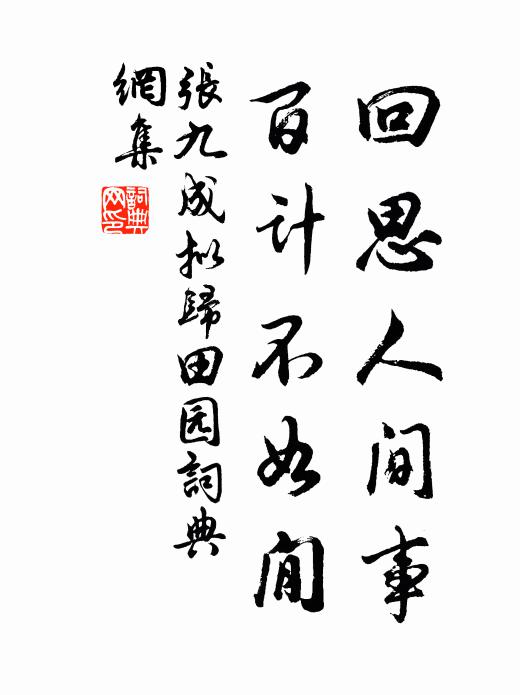 回思人间事
百计不如闲
張九成拟歸田园詞典
網集
詞典网印